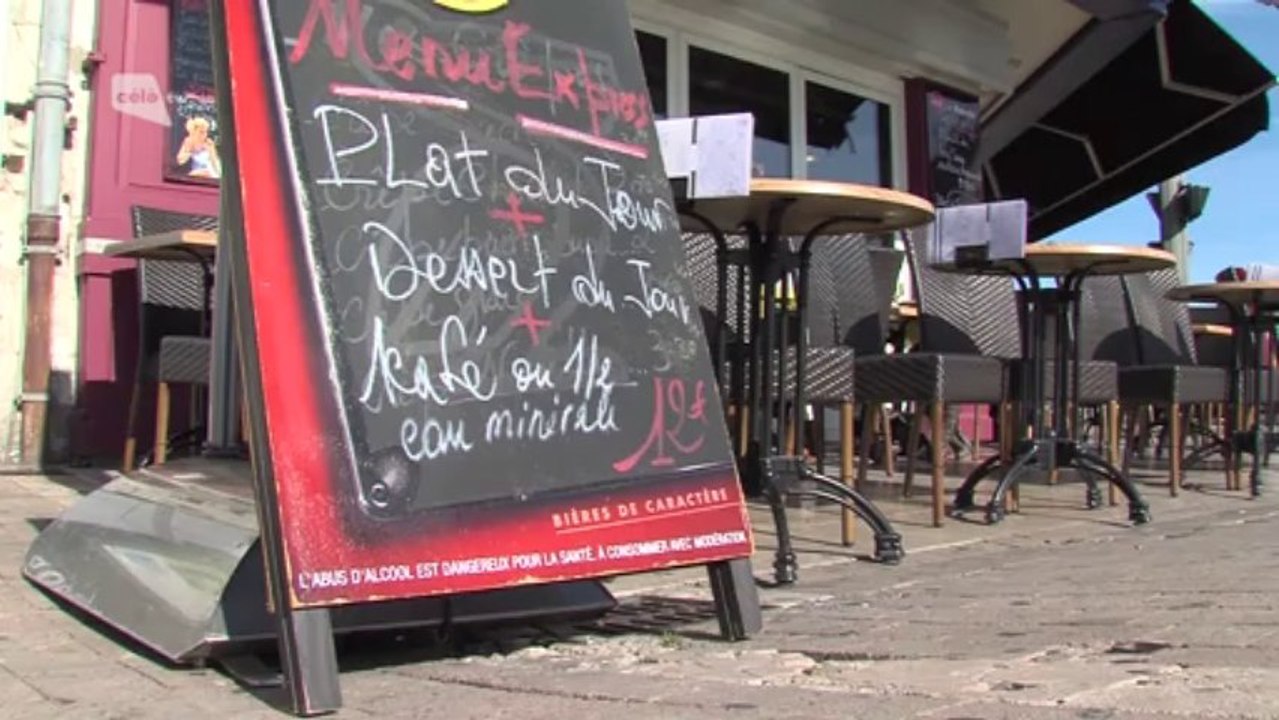 célò
Menu Express
PLat du Jour
+
Dessert du Jour
+
Kafé ou 1/2
eau minérale
12€
BIÈRES DE CARACTÈRE
L'ABUS D'ALCOOL EST DANGEREUX POUR LA SANTÉ, À CONSOMMER AVEC MODÉRATION